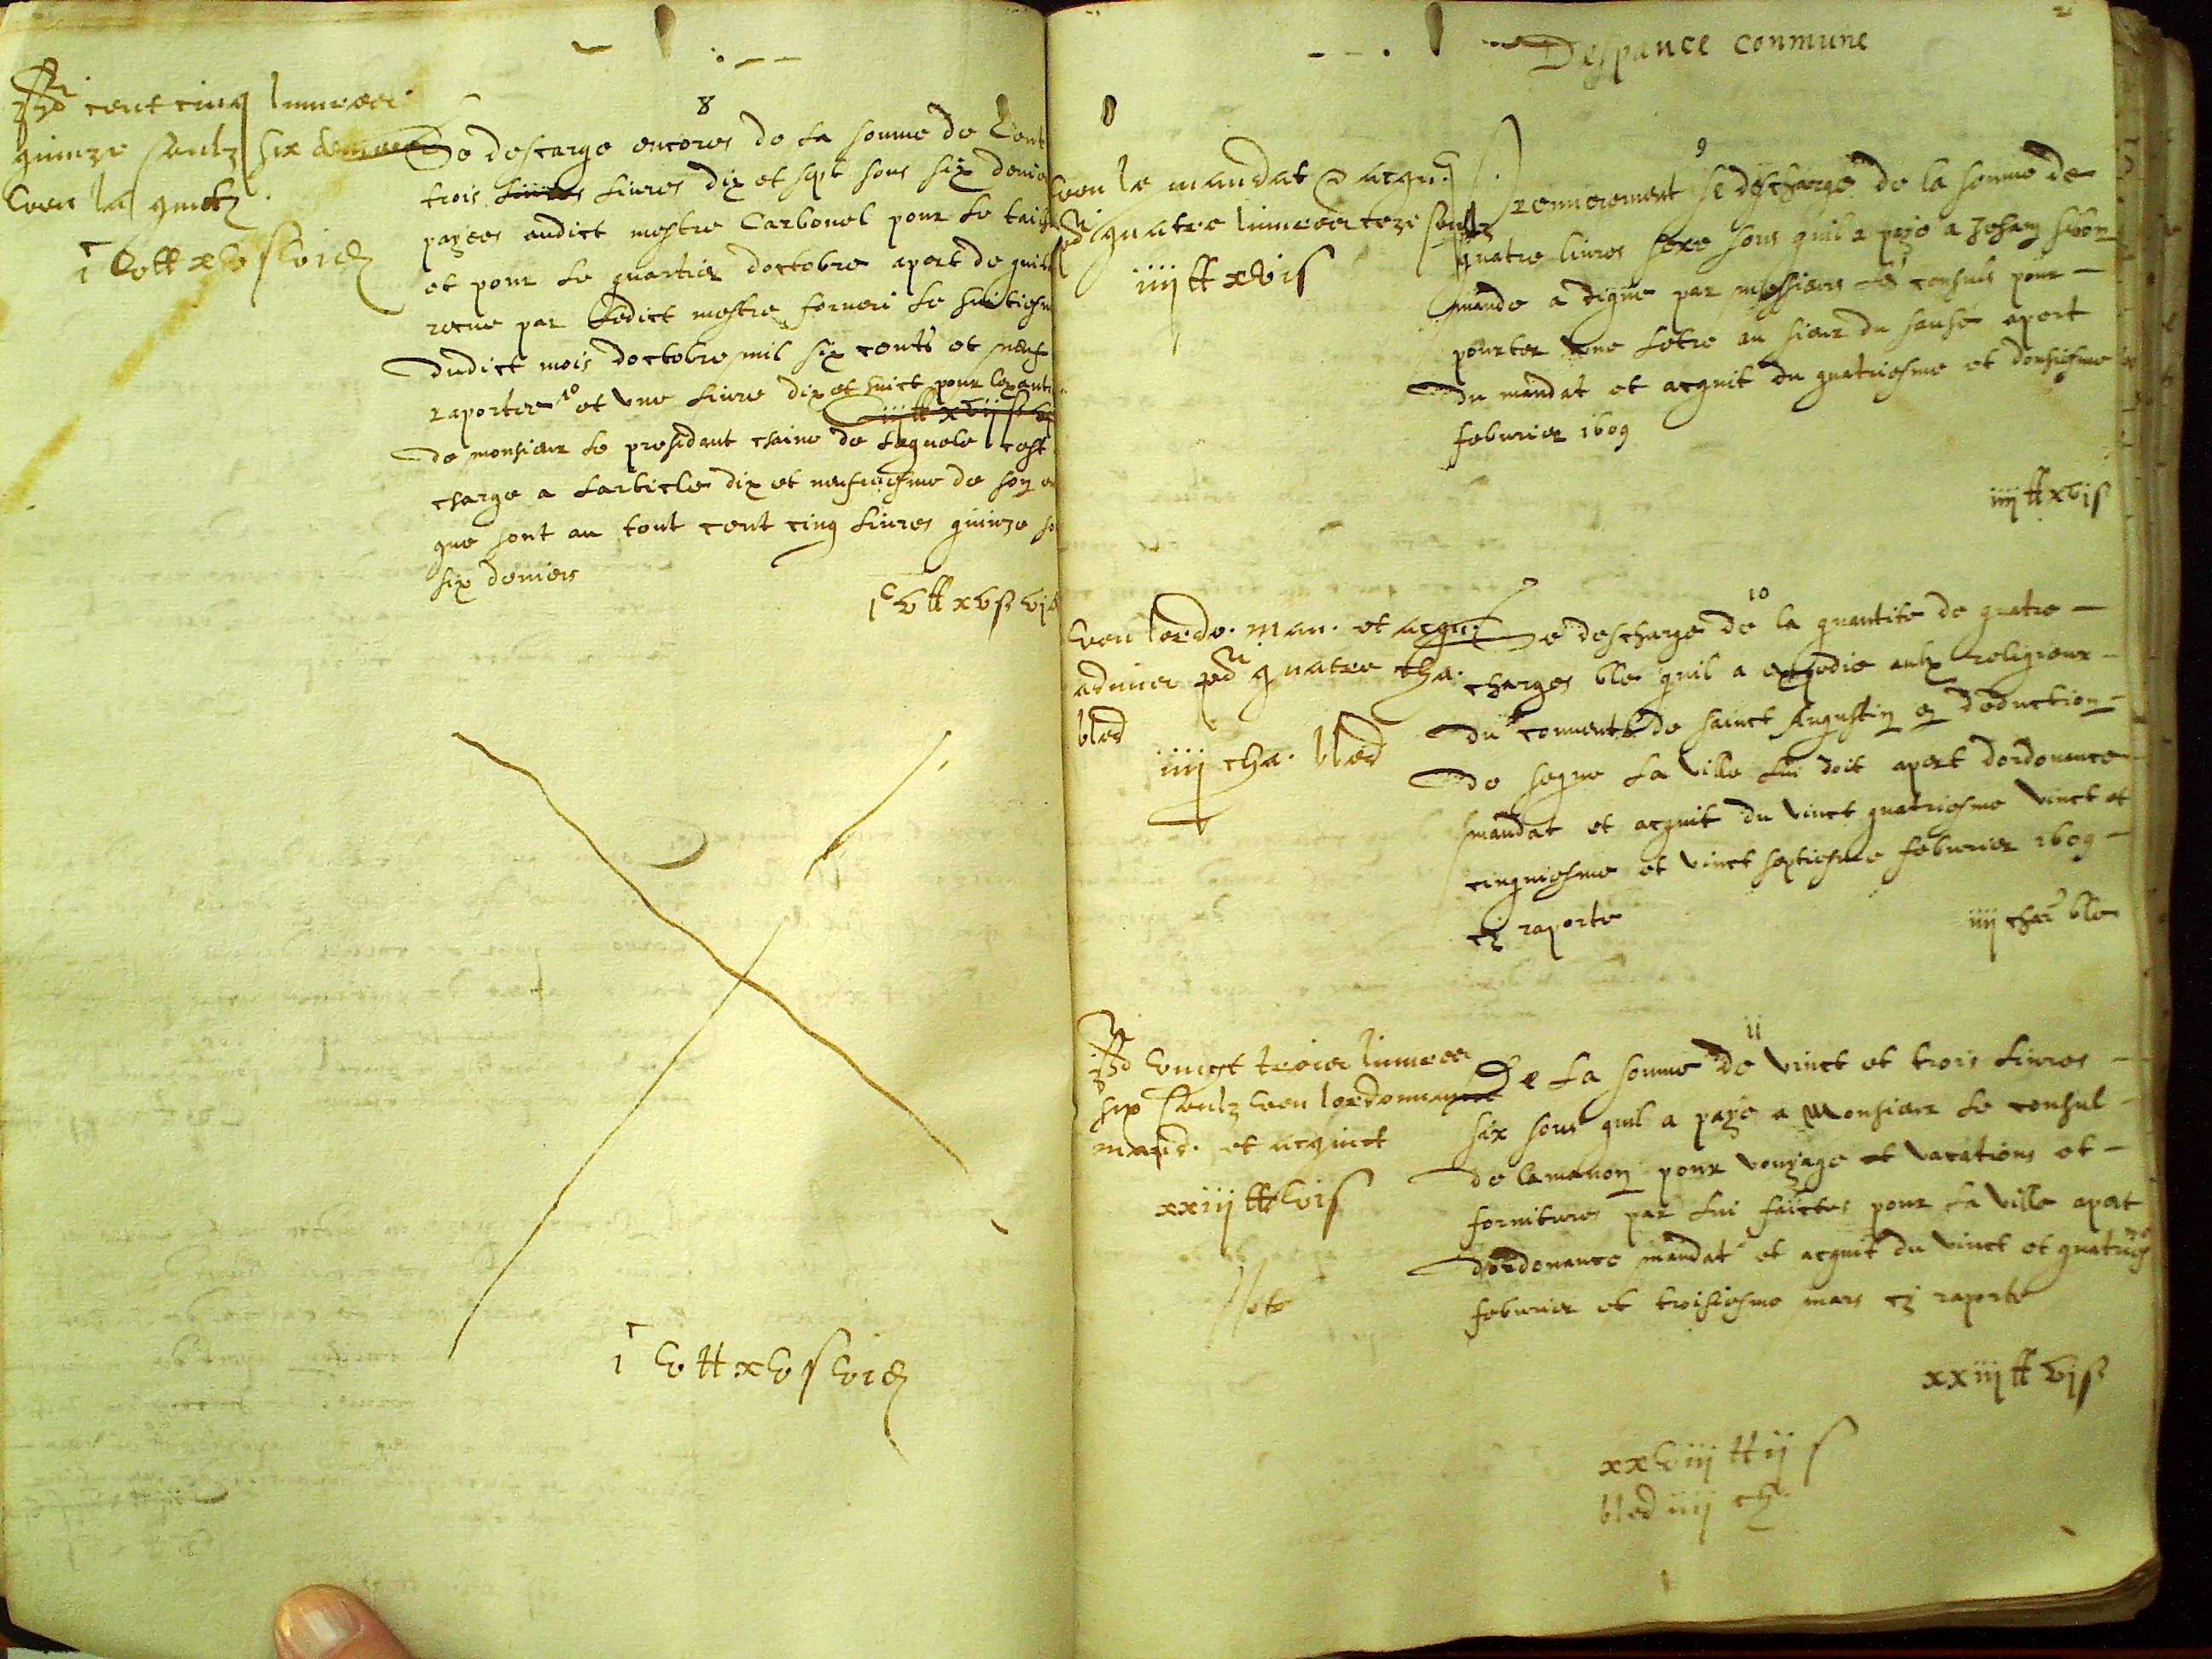 cent cinq livres
quinze soulz six deniers
veu la quitt.
i c v tt xv s vi d
8
Se descarge encores de la somme de Cent
trois livres dix et sept sous six denie
payees audict mestre Carbonel pour le tail
et pour le quartier doctobre apert de quit
receue par ledict mestre forneri le huitiesm
dudict mois doctobre mil six cents et neuf
raportee et une livre dix et huict pour
iij tt xvij s vj
de monsieur le presidant chaine de laquele cest
charge a larticle dix et neufviesme de son
que sont au tout cent cinq livres quinze so
six deniers
i c v tt xv s vj d
i c v tt xv s vi d
Despance conmune
veu le mandat & acqu.
quatre livres seze soulz
iiij tt xvi s
9
Premierement se descharge de la somme de
quatre livres seze sous quil a paye a Jehan
mande a digne par messieurs les consuls pour
pourter une letre au sieur du sause apert
du mandat et acquit du quatriesme et donsiesme
febvrier 1609
iiij tt xvj s
veu lordo. man. et acqu.
admis quatre cha.
bled
iiij cha. bled
10
Se descharge de la quantite de quatre
charges ble quil a expedie aulx religieux
du couvent de sainct Augustin en deduction
de seque la ville lui doit apert dordonance
mandat et acquit du vinct quatriesme vinct et
cinquiesme et vinct septiesme febvrier 1609
cy raporte
iiij char ble
vingt trois livres
six soulz veu lordonnance
mand. et acquict
xxiij tt vi s
Note
11
De la somme de vinct et trois livres
six sous quil a paye a Monsieur le consul
de lamanon pour vouyage et vacations et
fornitures par lui faictes pour la ville apert
dordonance mandat et acquit du vinct et quatries
febvrier et troisiesme mars cy raporte
xxiij tt vj s
xxviij tt ij s
bled iiij ch.